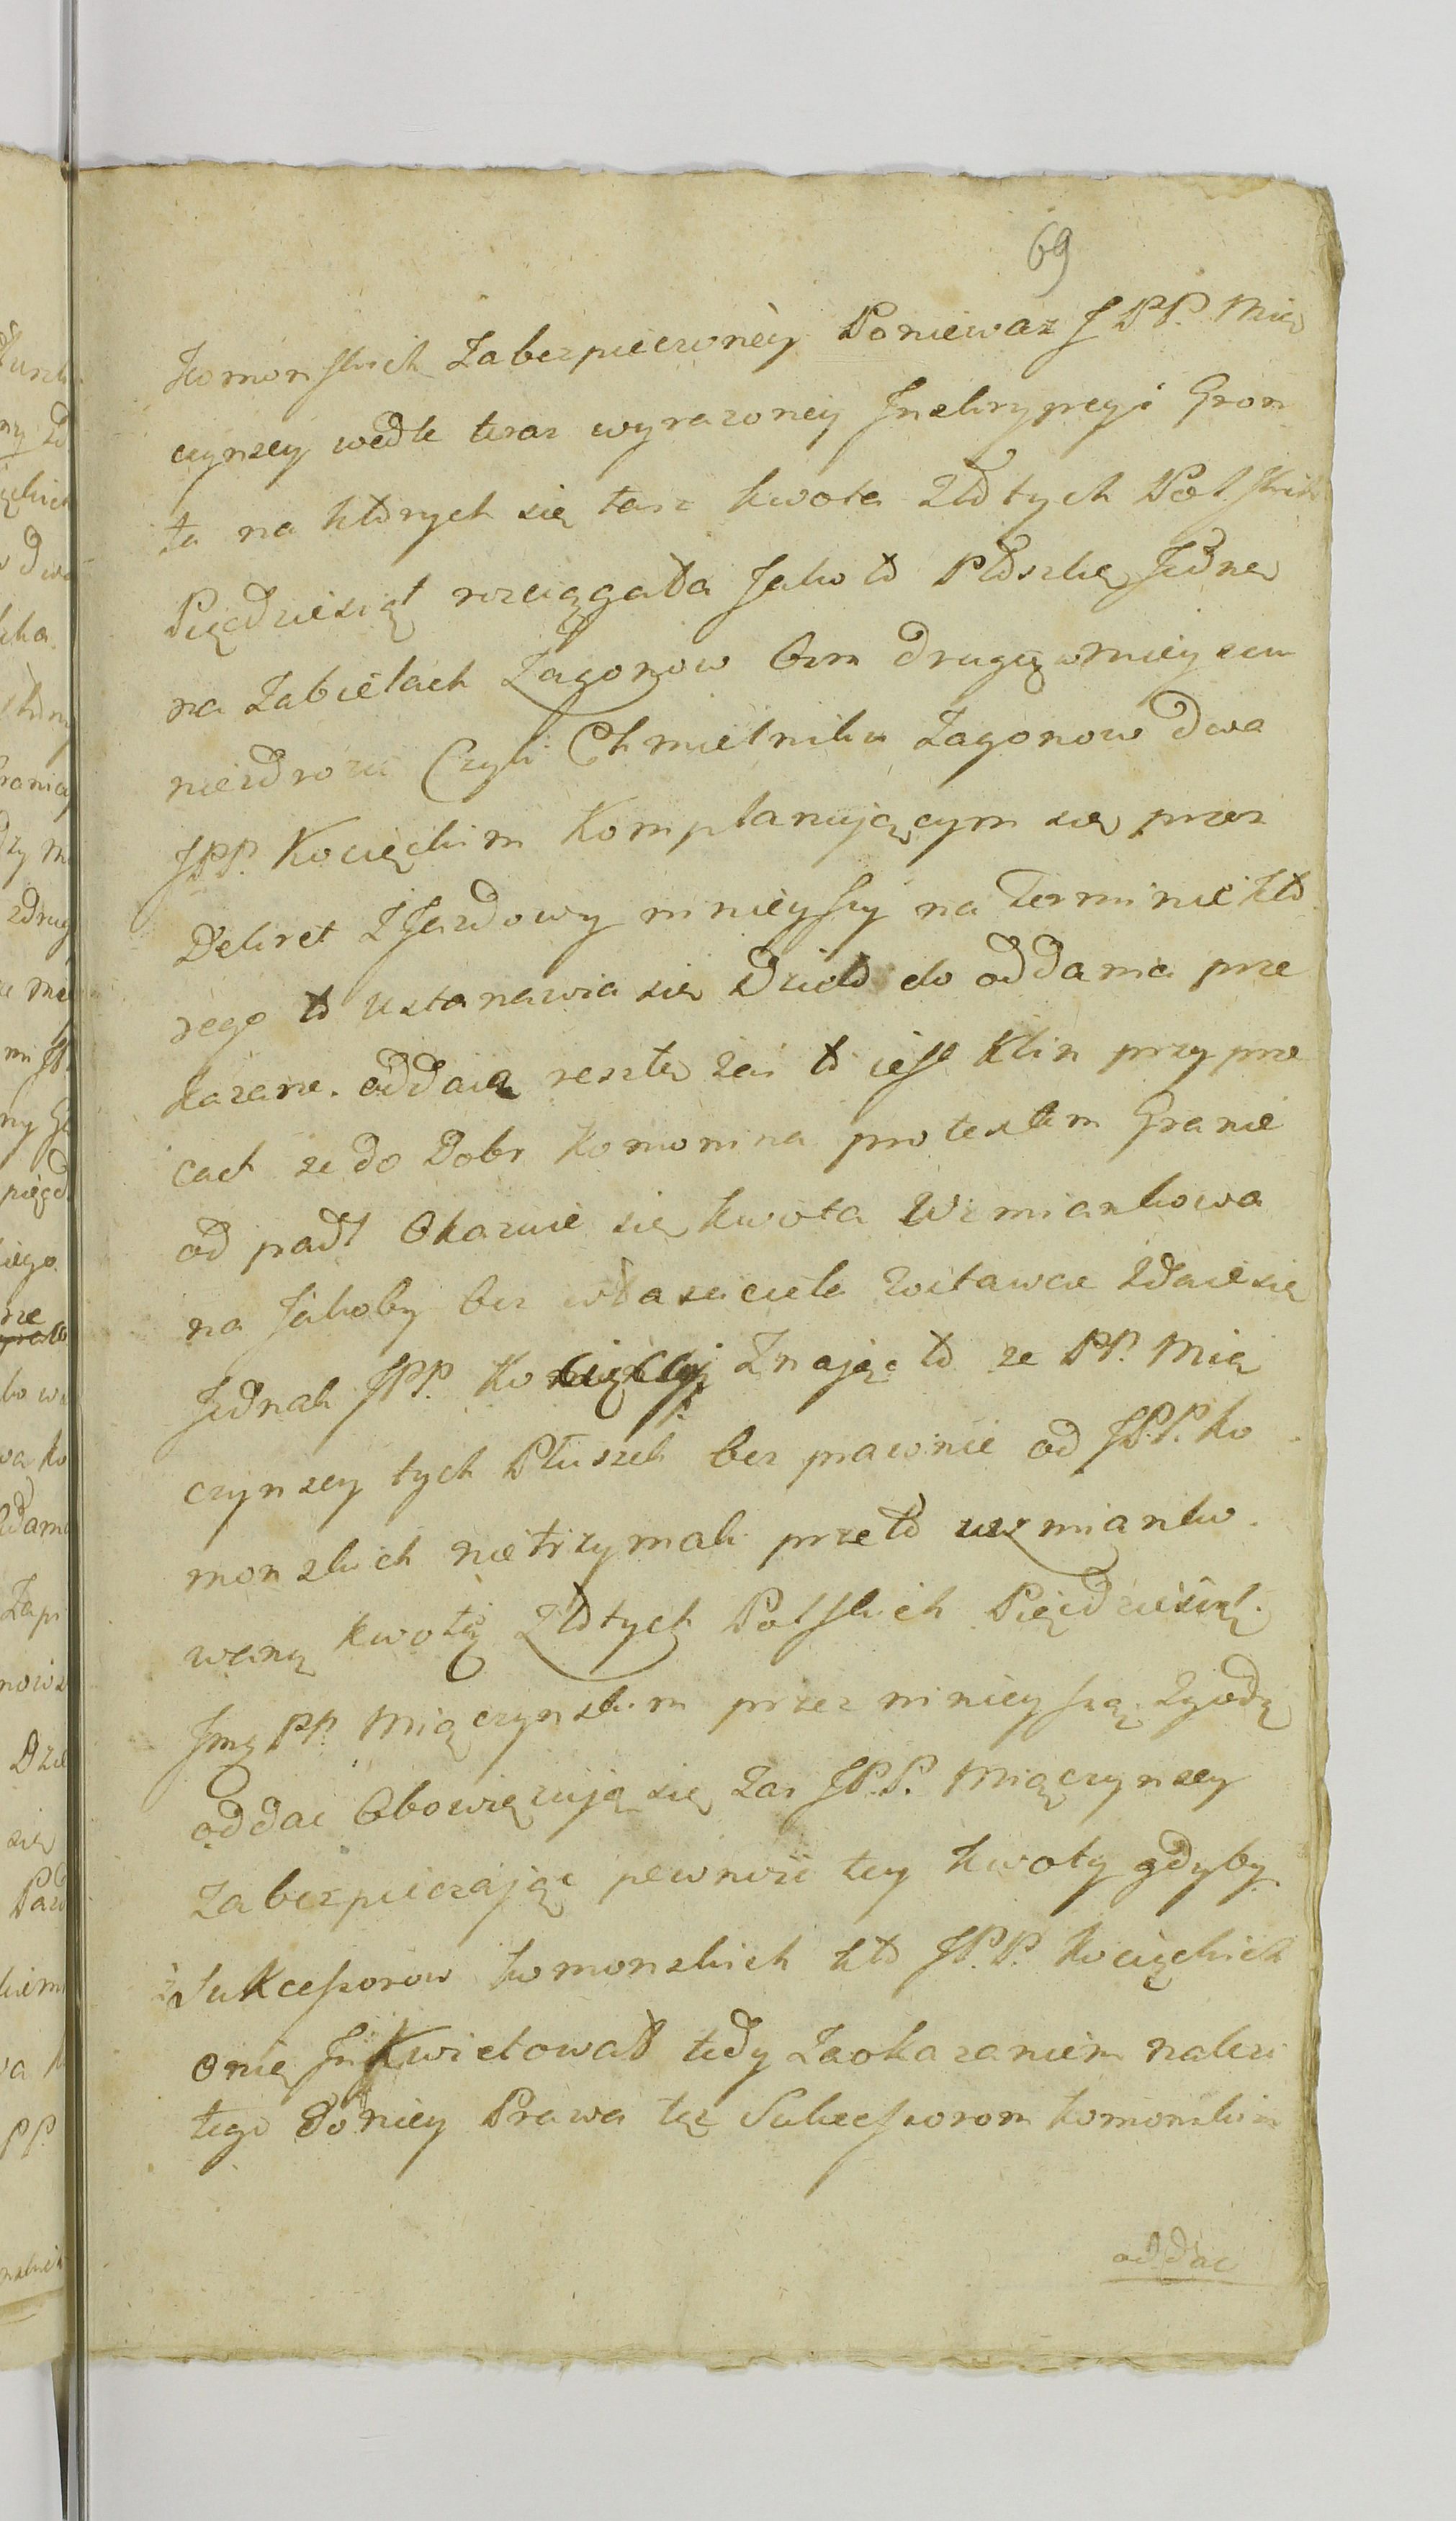 69
Komonskich Zabezpieczoney Poniewaz JPP. Mią
czynscy wedle teraz wyrazoney Inskrypcyi Gron
ta na ktorych się taz kwota Złotych Polskich
Pięcdziesiąt rozciągała Jako to Płoskę Jedne
na Zabielach Zagonow Osm drugą w mieyscu
niezdrozu Czyli Chmielniku Zagonow dwa
JPP. Kocięckim Komplanującym się przez
Dekret Zjazdowy mnieyszy na Terminie kto
rego to ustanawia się Dzieło do oddania prze
kazane. oddaią resztę zas to iest Klin przy pre
cach ze do Dobr Komonina protextem Granic
od padł Okazuie się kwota Wzmiankowa
na Jakoby bez własciciela zostawac Zdaie się
Jednak JPP. Kocięccy Znając to ze PP. Mią
czynscy tych Płuszek bez prawnie od JPP. Ko
monskich nie trzymali przeto wzmianko.
waną kwotę Złotych Polskich Pięcdziesiąt.
Jmę PP. Miączynskim przez ninieyszą Zgodę
oddac Obowięzują się Zas JPP. Miączynscy
Zabezpieczając pewnosc tey kwoty gdyby
z Sukcessorow Komonskich kto JPP. Kocięckich
onię Inkwietował tedy Zaokazaniem nalezi
tego do niey Prawa tęz Sukcessorom Komonskim
oddac